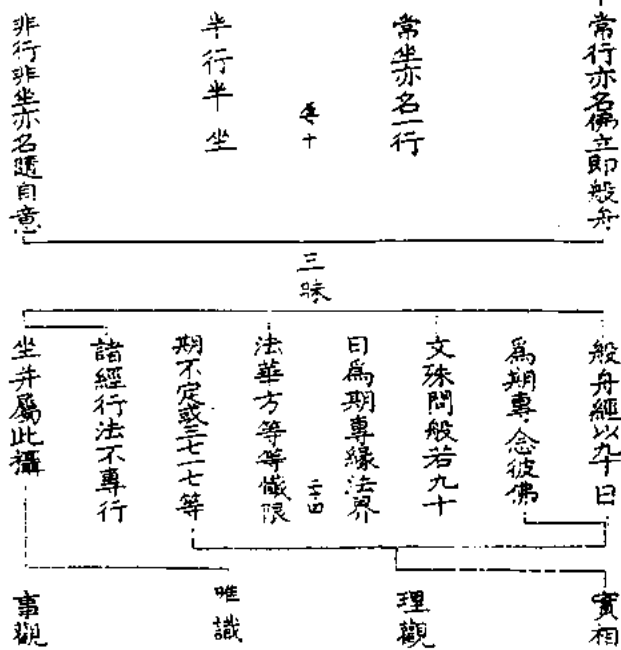 常行亦名佛立即般舟
常坐亦名一行
半行半坐
非行非坐亦名隨自意
三昧
般舟經以九十日
為期專念彼佛
文殊問般若九十
日為期專緣法界
法華方等等懺限
二四
期不定或三七一七等
諸經行法不專行
坐并屬此攝
實相
理觀
唯識
事觀